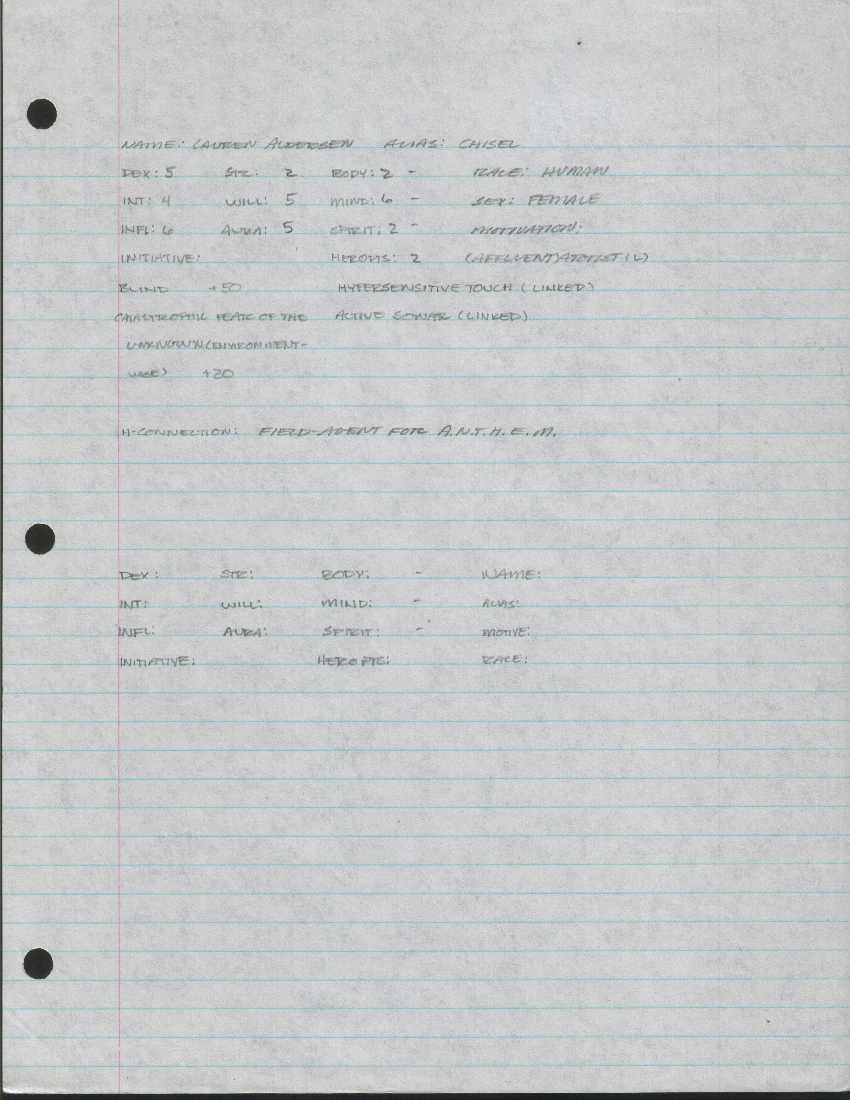 NAME: LAUREN ANDERSEN ALIAS: CHISEL
DEX: 5 STR: 2 BODY: 2 - RACE: HUMAN
INT: 4 WILL: 5 MIND: 6 - SEX: FEMALE
INFL: 6 AURA: 5 SPIRIT: 2 - MOTIVATION:
INITIATIVE: HEROPTS: 2 (AFFLUENT) ARTIST (L)
BLIND +50 HYPERSENSITIVE TOUCH (LINKED)
CATASTROPHIC FEAR OF THE ACTIVE SONAR (LINKED)
UNKNOWN (ENVIRONMENT-
+20
H-CONNECTION: FIELD-AGENT FOR A.N.T.H.E.M.
DEX: STR: BODY: - NAME:
INT: WILL: MIND: - ALIAS:
INFL: AURA: SPIRIT: - MOTIVE:
INITIATIVE: HERO PTS: RACE: